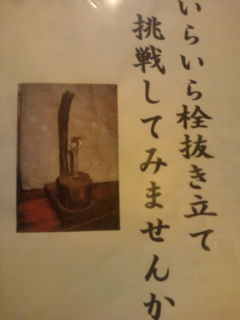 いらいら栓抜き立て
挑戦してみませんか